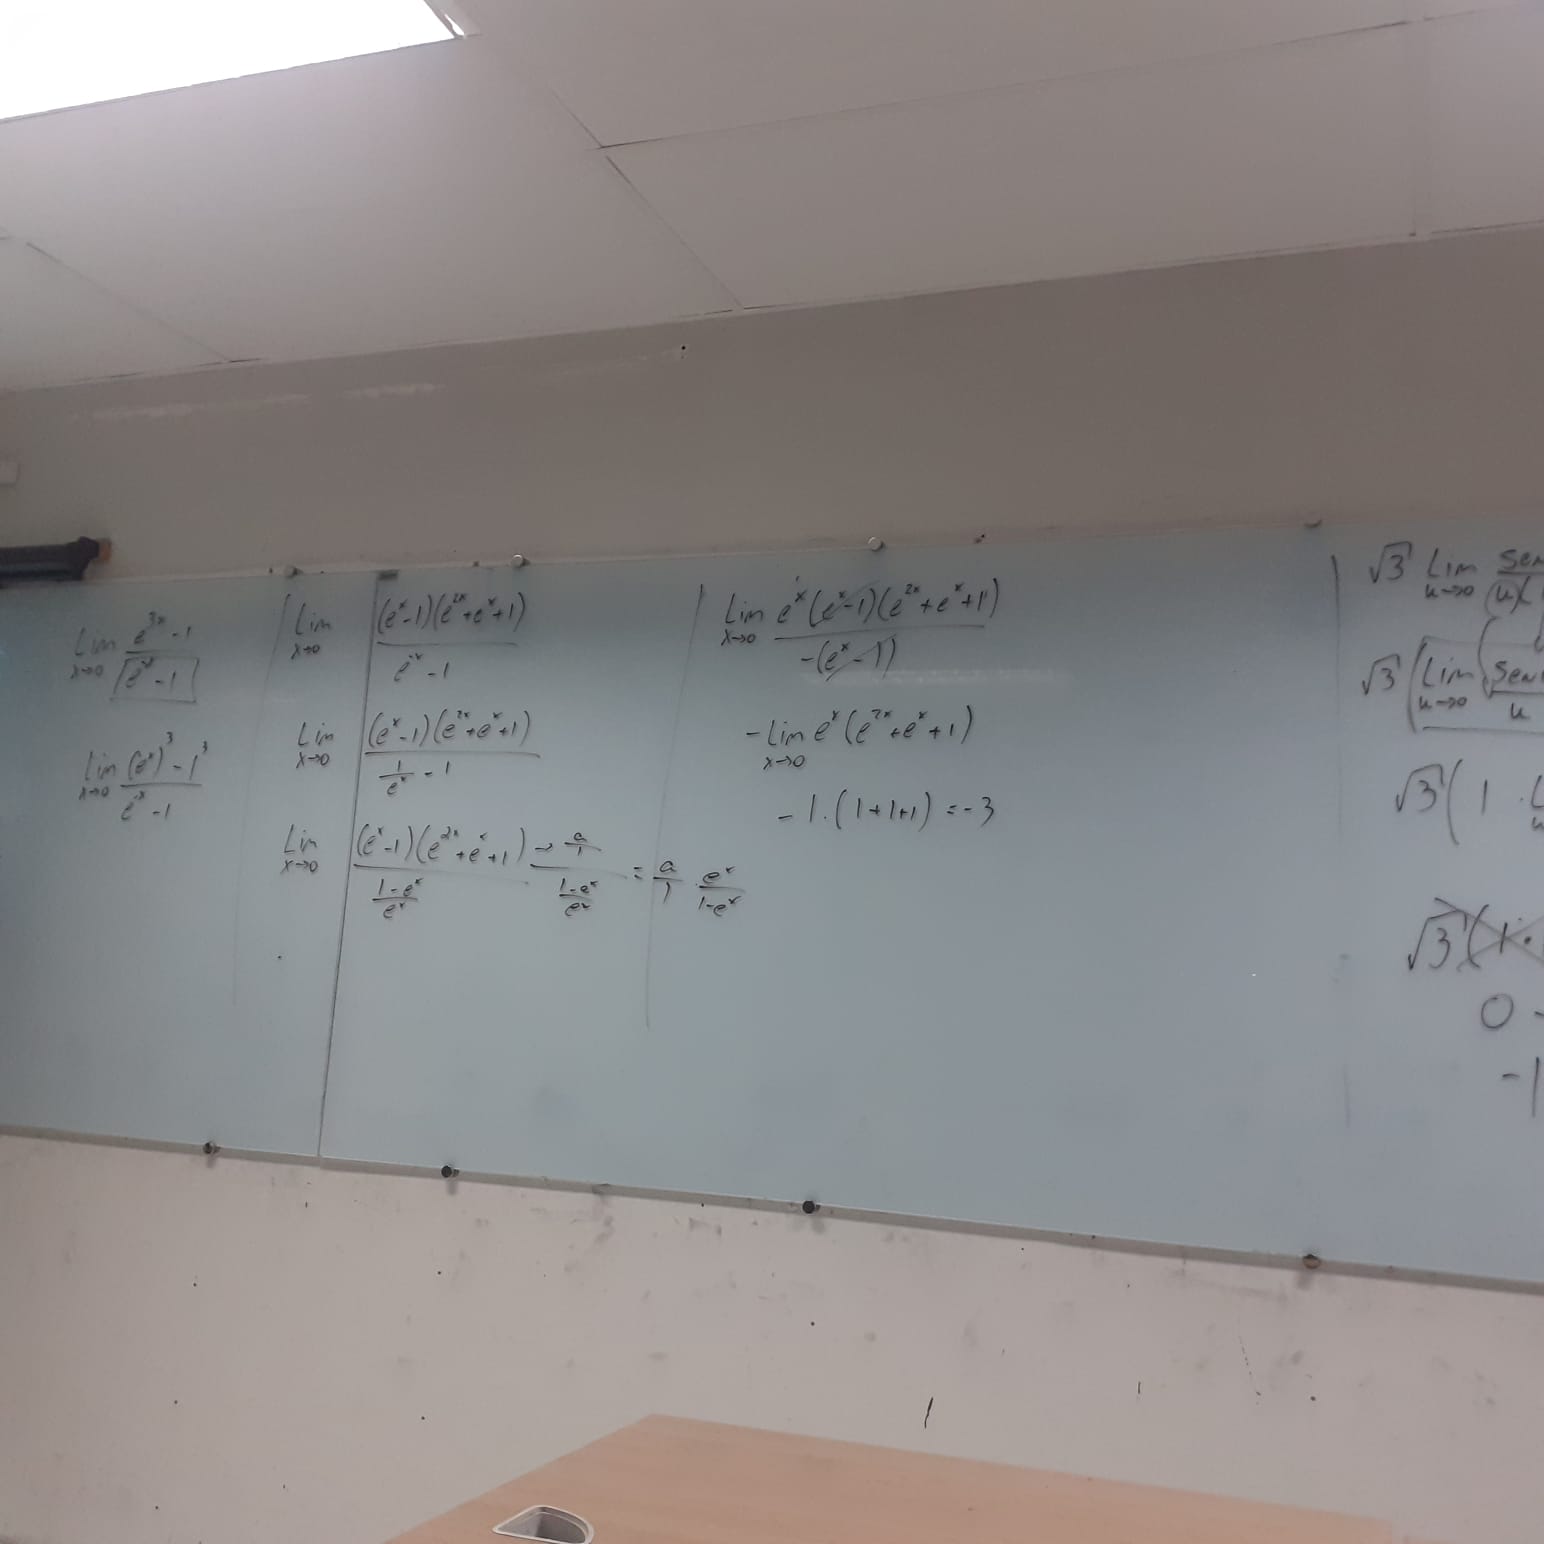 Lim x→0 (e^{3x} - 1)/(e^{-x} - 1)
Lim x→0 ((e^x)^3 - 1^3)/(e^{-x} - 1)
Lim x→0 ((e^x - 1)(e^{2x} + e^x + 1))/(e^{-x} - 1)
Lim x→0 ((e^x - 1)(e^{2x} + e^x + 1))/(1/e^x - 1)
Lim x→0 ((e^x - 1)(e^{2x} + e^x + 1))/((1 - e^x)/e^x) → (a/1)/((1 - e^x)/e^x) = a/1 · e^x/(1 - e^x)
Lim x→0 (e^x (e^x - 1)(e^{2x} + e^x + 1))/(-(e^x - 1))
-Lim x→0 e^x (e^{2x} + e^x + 1)
-1 · (1+1+1) = -3
√3 Lim u→0 sen
(u)(
√3 (Lim u→0 (sen
u
√3 (1 ·
√3 (1 ·
0 -
-1